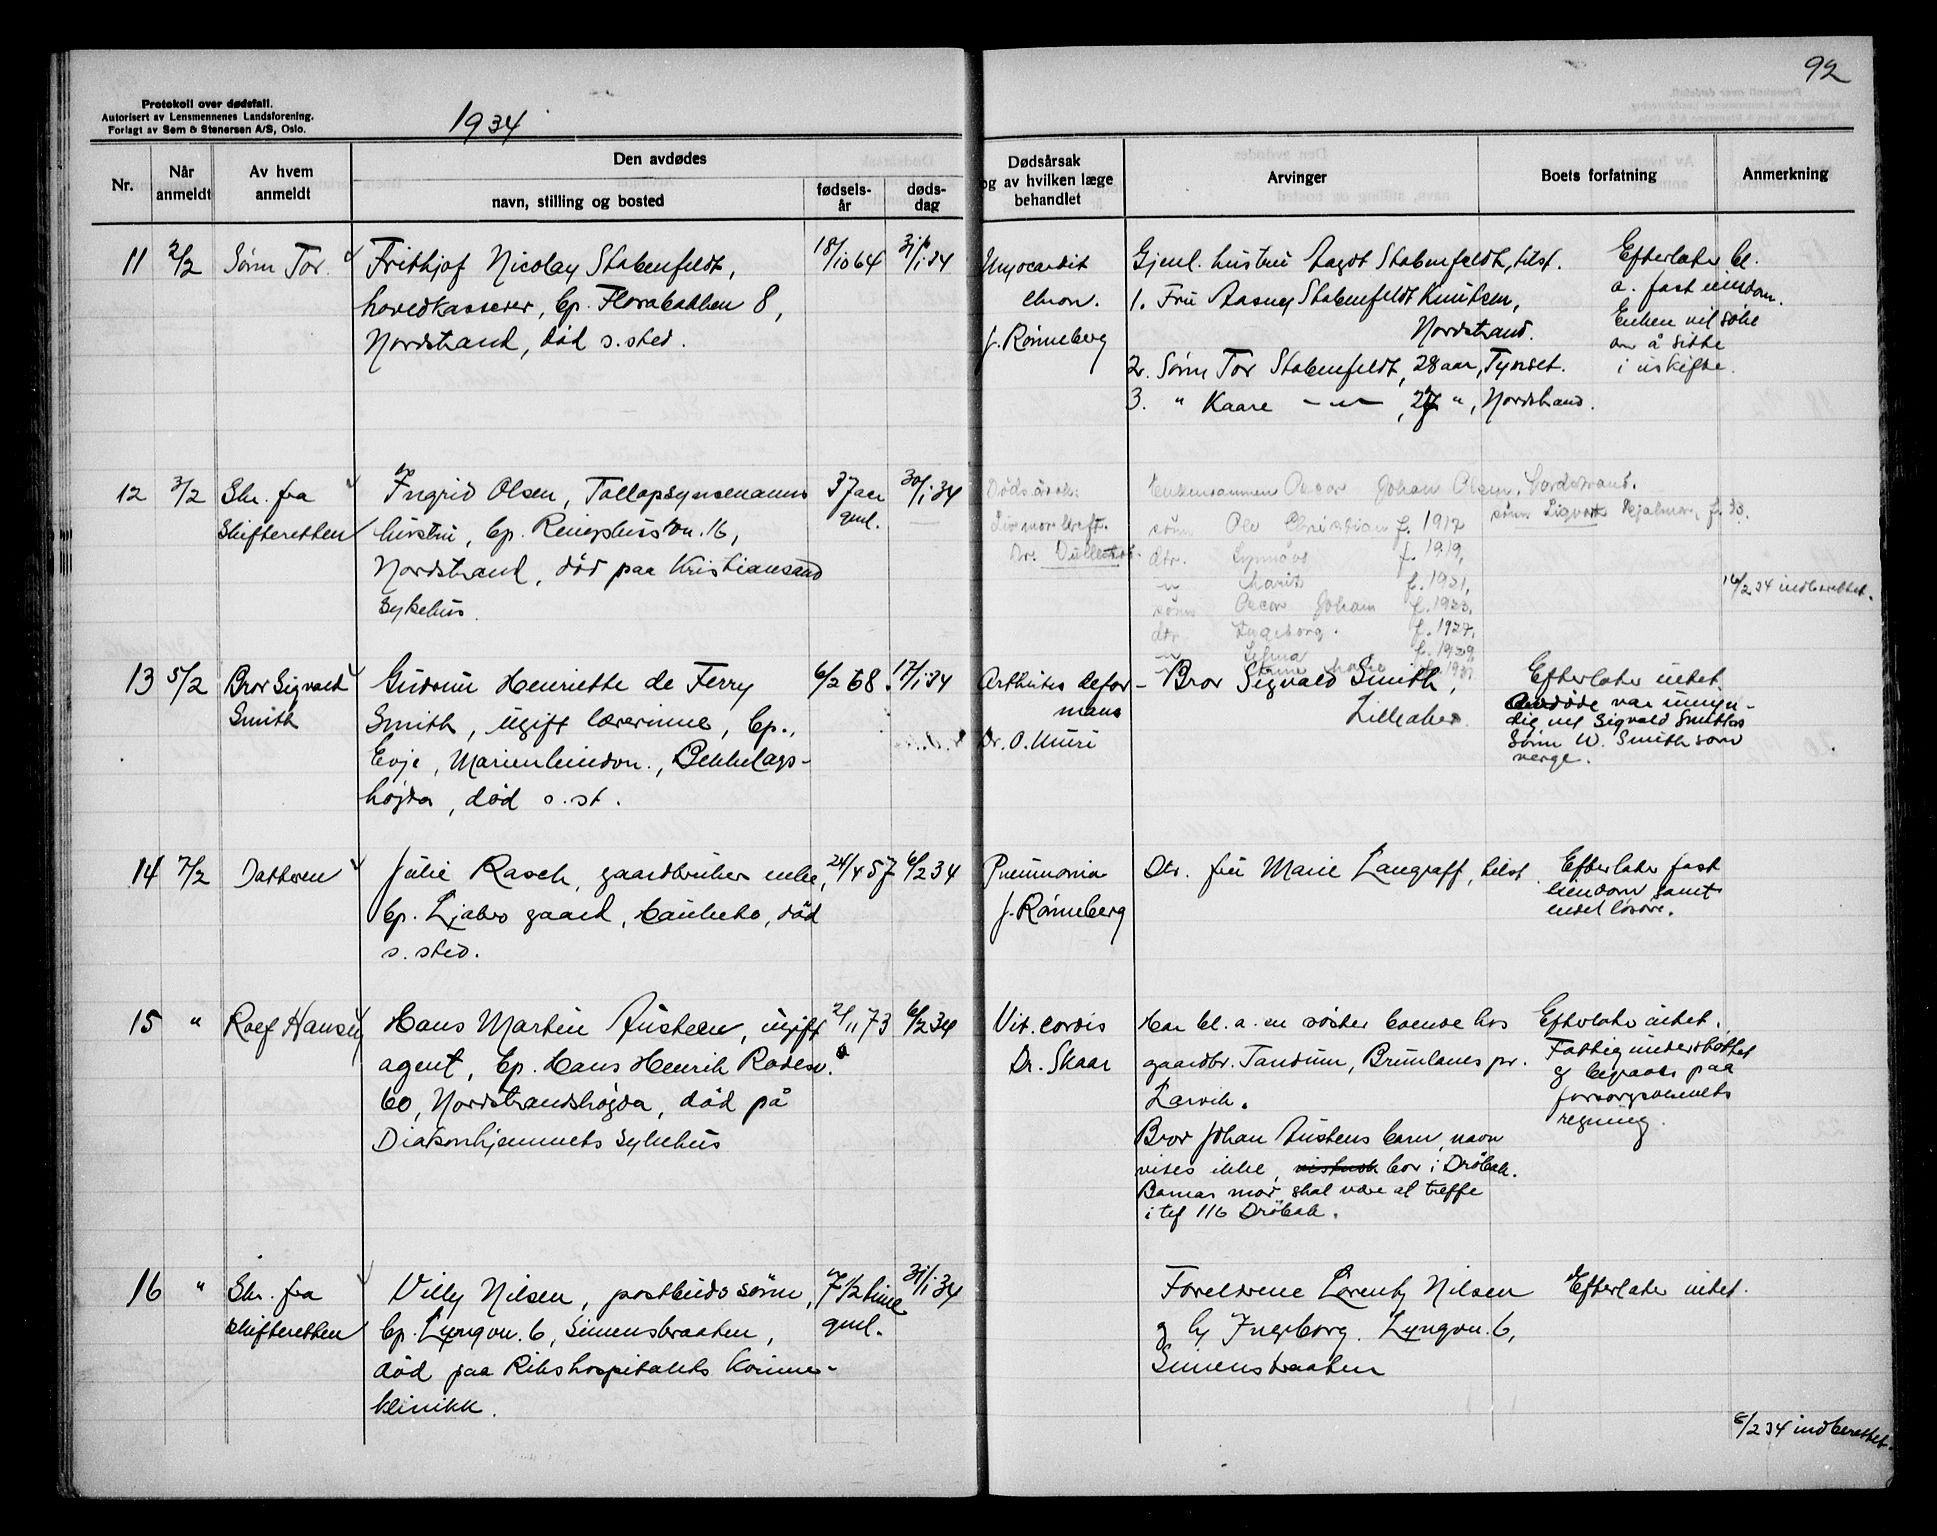 92
Protokoll over dødsfall.
Autorisert av Lensmennenes Landsforening.
Forlagt av Sem & Stenersen A/S, Oslo.
1934
Nr.
Når anmeldt
Av hvem anmeldt
Den avdødes
navn, stilling og bosted
fødsels-år
døds-dag
Dødsårsak og av hvilken læge behandlet
Arvinger
Boets forfatning
Anmerkning
11 2/2 Sønn Tor.
Frithjof Nicolay Stabenfeldt,
hovedkasserer, bp. Florabakken 8,
Nordstrand, død s. sted.
18/10 64
31/1 34
Myocardit
chron.
J. Rønneberg
Gjenl. hustru Aagot Stabenfeldt, tilst.
1. Fru Aasney Stabenfeldt Knutsen,
Nordstrand.
2. Sønn Tor Stabenfeldt, 28 aar, Tynset.
3. " Kaare -"- , 27 ", Nordstrand.
Efterlater bl.
a. fast eiendom.
Enken vil søke
om å sitte
i uskifte.
12 3/2 Skr. fra
skifteretten
Ingrid Olsen, Tollopsynsmanns
hustru, bp. 16,
Nordstrand, død paa Kristiansand
sykehus.
37 aar
gml.
30/1 34
Dødsårsak:
Livmorkreft.
Dr.
Enkemannen Oscar Johan Olsen, Nordstrand.
sønn Ole Christian f. 1917
dtr. Synnøve f. 1919,
" Marit f. 1921,
sønn Oscar Johan f. 1923,
dtr. Ingeborg. f. 1927,
" Selma f. 1929,
sønn Sigvart Hjalmar, f. 33.
16/2 34 indberettet.
13 5/2 Bror Sigvald
Smith
Gudrun Henriette de Ferry
Smith, ugift lærerinne, bp.,
Evje, Marienlundvn., Bekkelags-
høgda, død s. st.
6/2 68.
17/1 34
Arthritis defor-
mans
Dr. O. Muri
Bror Sigvald Smith,
Lilleaker.
Efterlater intet.
Avdøde var umyn-
dig med Sigvald Smiths
Sønn W. Smith som
verge.
14 7/2 Datteren
Julie Rasch, gaardbruker enke,
bp. Ljabro gaard, Hauketo, død
s. sted.
24/4 57
6/2 34
Pneumonia
J. Rønneberg
Dtr. fru Marie Langraff, tilst.
Efterlater fast
eiendom samt
endel løsøre.
15 " Rolf Hansen
Hans Martin Austeen, ugift
agent, bp. Hans Henrik Rodesv.
60, Nordstrandshøgda, død på
Diakonhjemmets sykehus
2/11 73
6/2 34
Vit. cordis
Dr. Skaar
Har bl. a. en søster boende hos
gaardbr. Tandum, Brunlanes pr.
Larvik.
Bror Johan Austeens barn, navn
vites ikke, bor i Drøbak.
Barnas mor skal være at treffe
i tlf 116 Drøbak.
Efterlater intet.
Fattigunderstøttet
og begraves paa
forsorgsvesenets
regning.
16 " Skr. fra
skifteretten
Villy Nilsen, postbuds sønn,
bp. Lyngvn. 6, Simensbraaten,
død paa Rikshospitalets Kvinne-
klinikk.
7 1/2 time
gml.
31/1 34
Foreldrene Lorentz Nilsen
og h Ingeborg. Lyngvn. 6,
Simensbraaten
Efterlater intet.
8/2 34 indberettet.